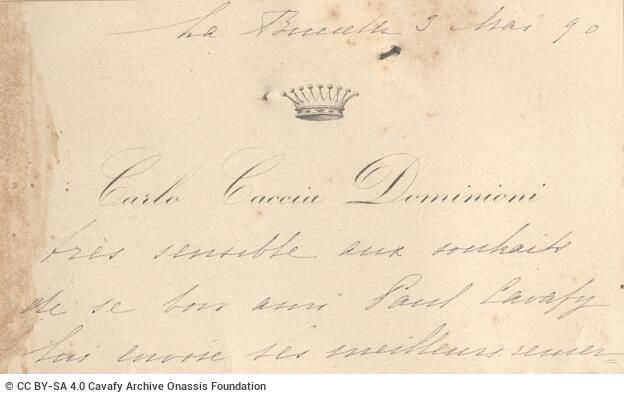 La 3 Mai 90
Carlo Caccia Dominioni
très sensible aux souhaits
de se bon ami Paul Cavafy
lui envoie ses meilleurs remer=
© CC BY-SA 4.0 Cavafy Archive Onassis Foundation